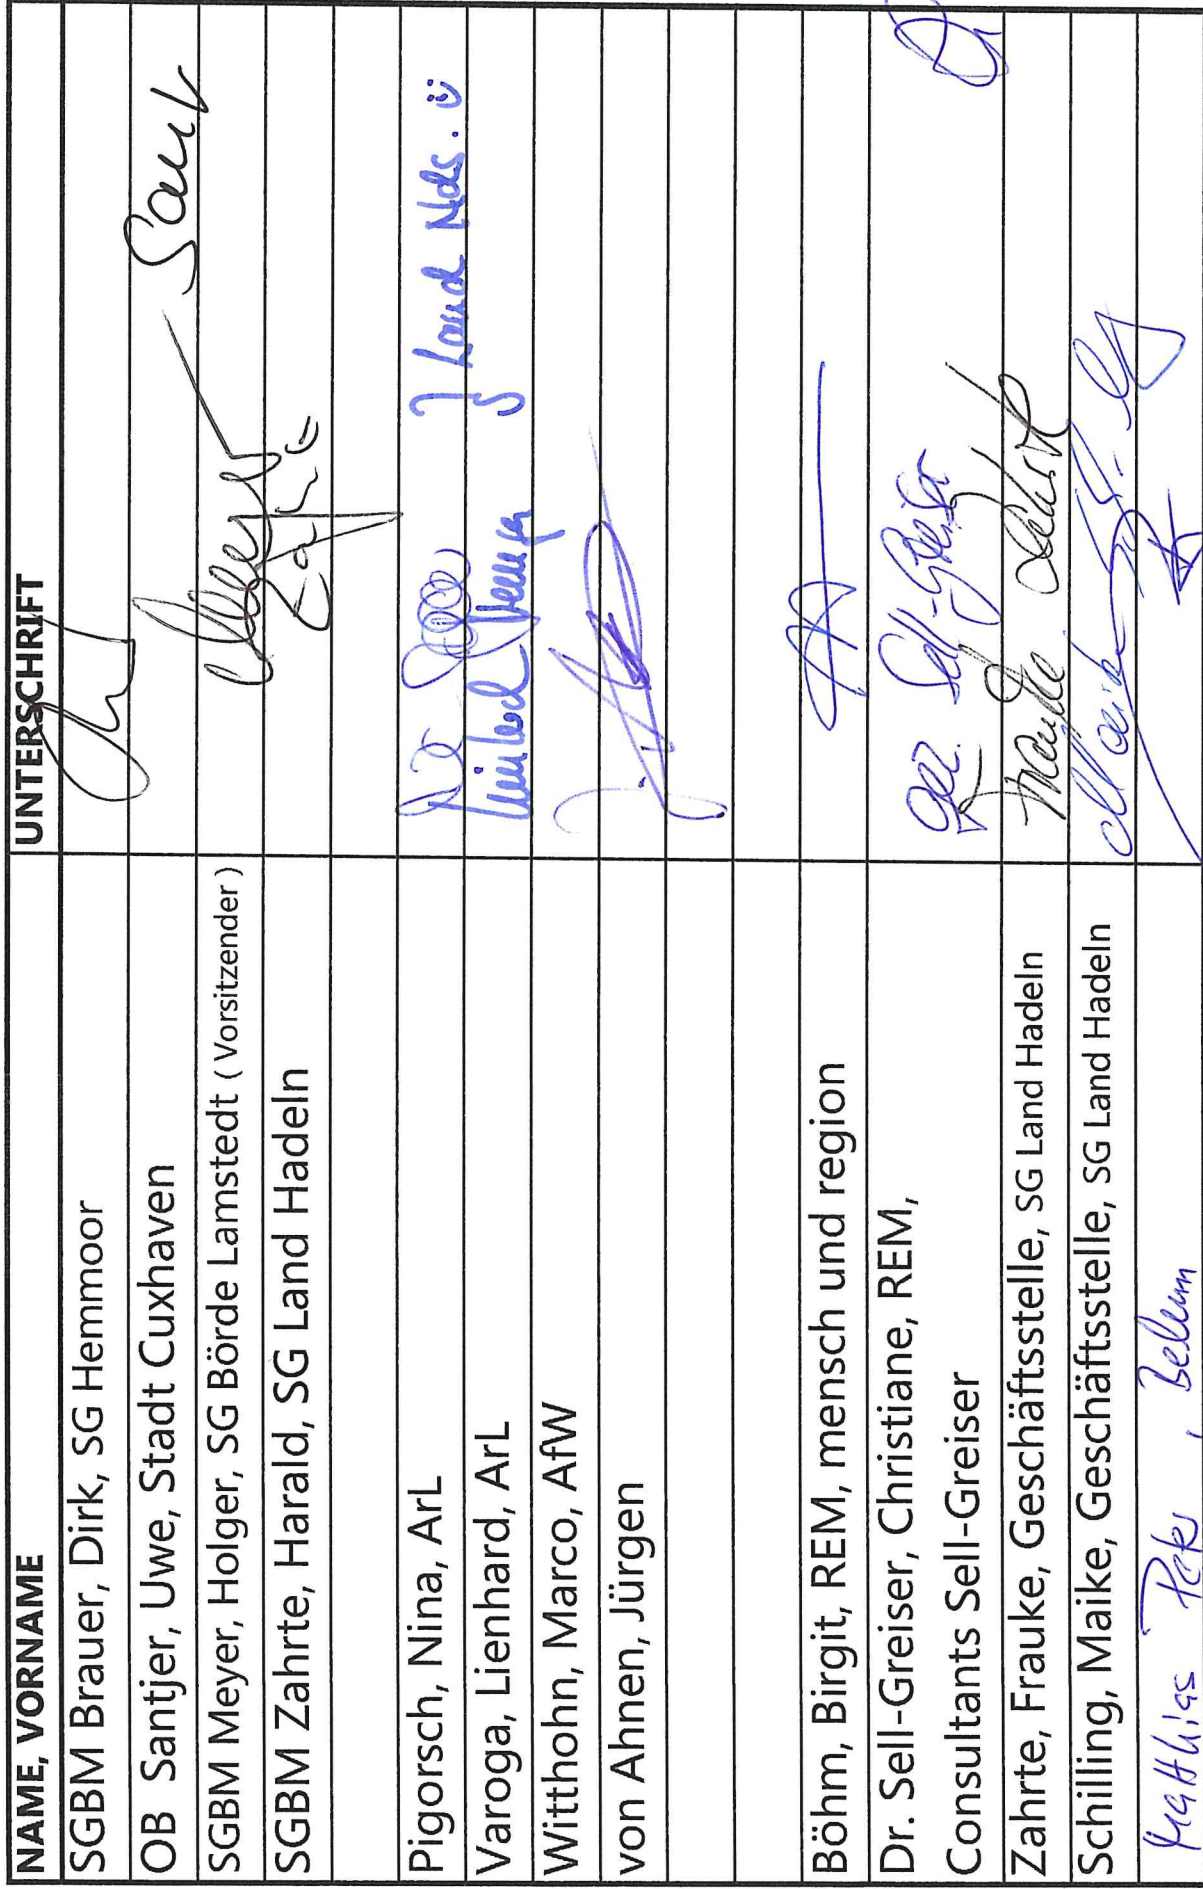 NAME, VORNAME UNTERSCHRIFT
SGBM Brauer, Dirk, SG Hemmoor
OB Santjer, Uwe, Stadt Cuxhaven
SGBM Meyer, Holger, SG Börde Lamstedt ( Vorsitzender ) Meyer
SGBM Zahrte, Harald, SG Land Hadeln
Pigorsch, Nina, ArL
Varoga, Lienhard, ArL Land Nds.
Witthohn, Marco, AfW
von Ahnen, Jürgen
Böhm, Birgit, REM, mensch und region
Dr. Sell-Greiser, Christiane, REM,
Consultants Sell-Greiser gez. Sell-Greiser
Zahrte, Frauke, Geschäftsstelle, SG Land Hadeln
Schilling, Maike, Geschäftsstelle, SG Land Hadeln Maike
Matthias Peter, Belum